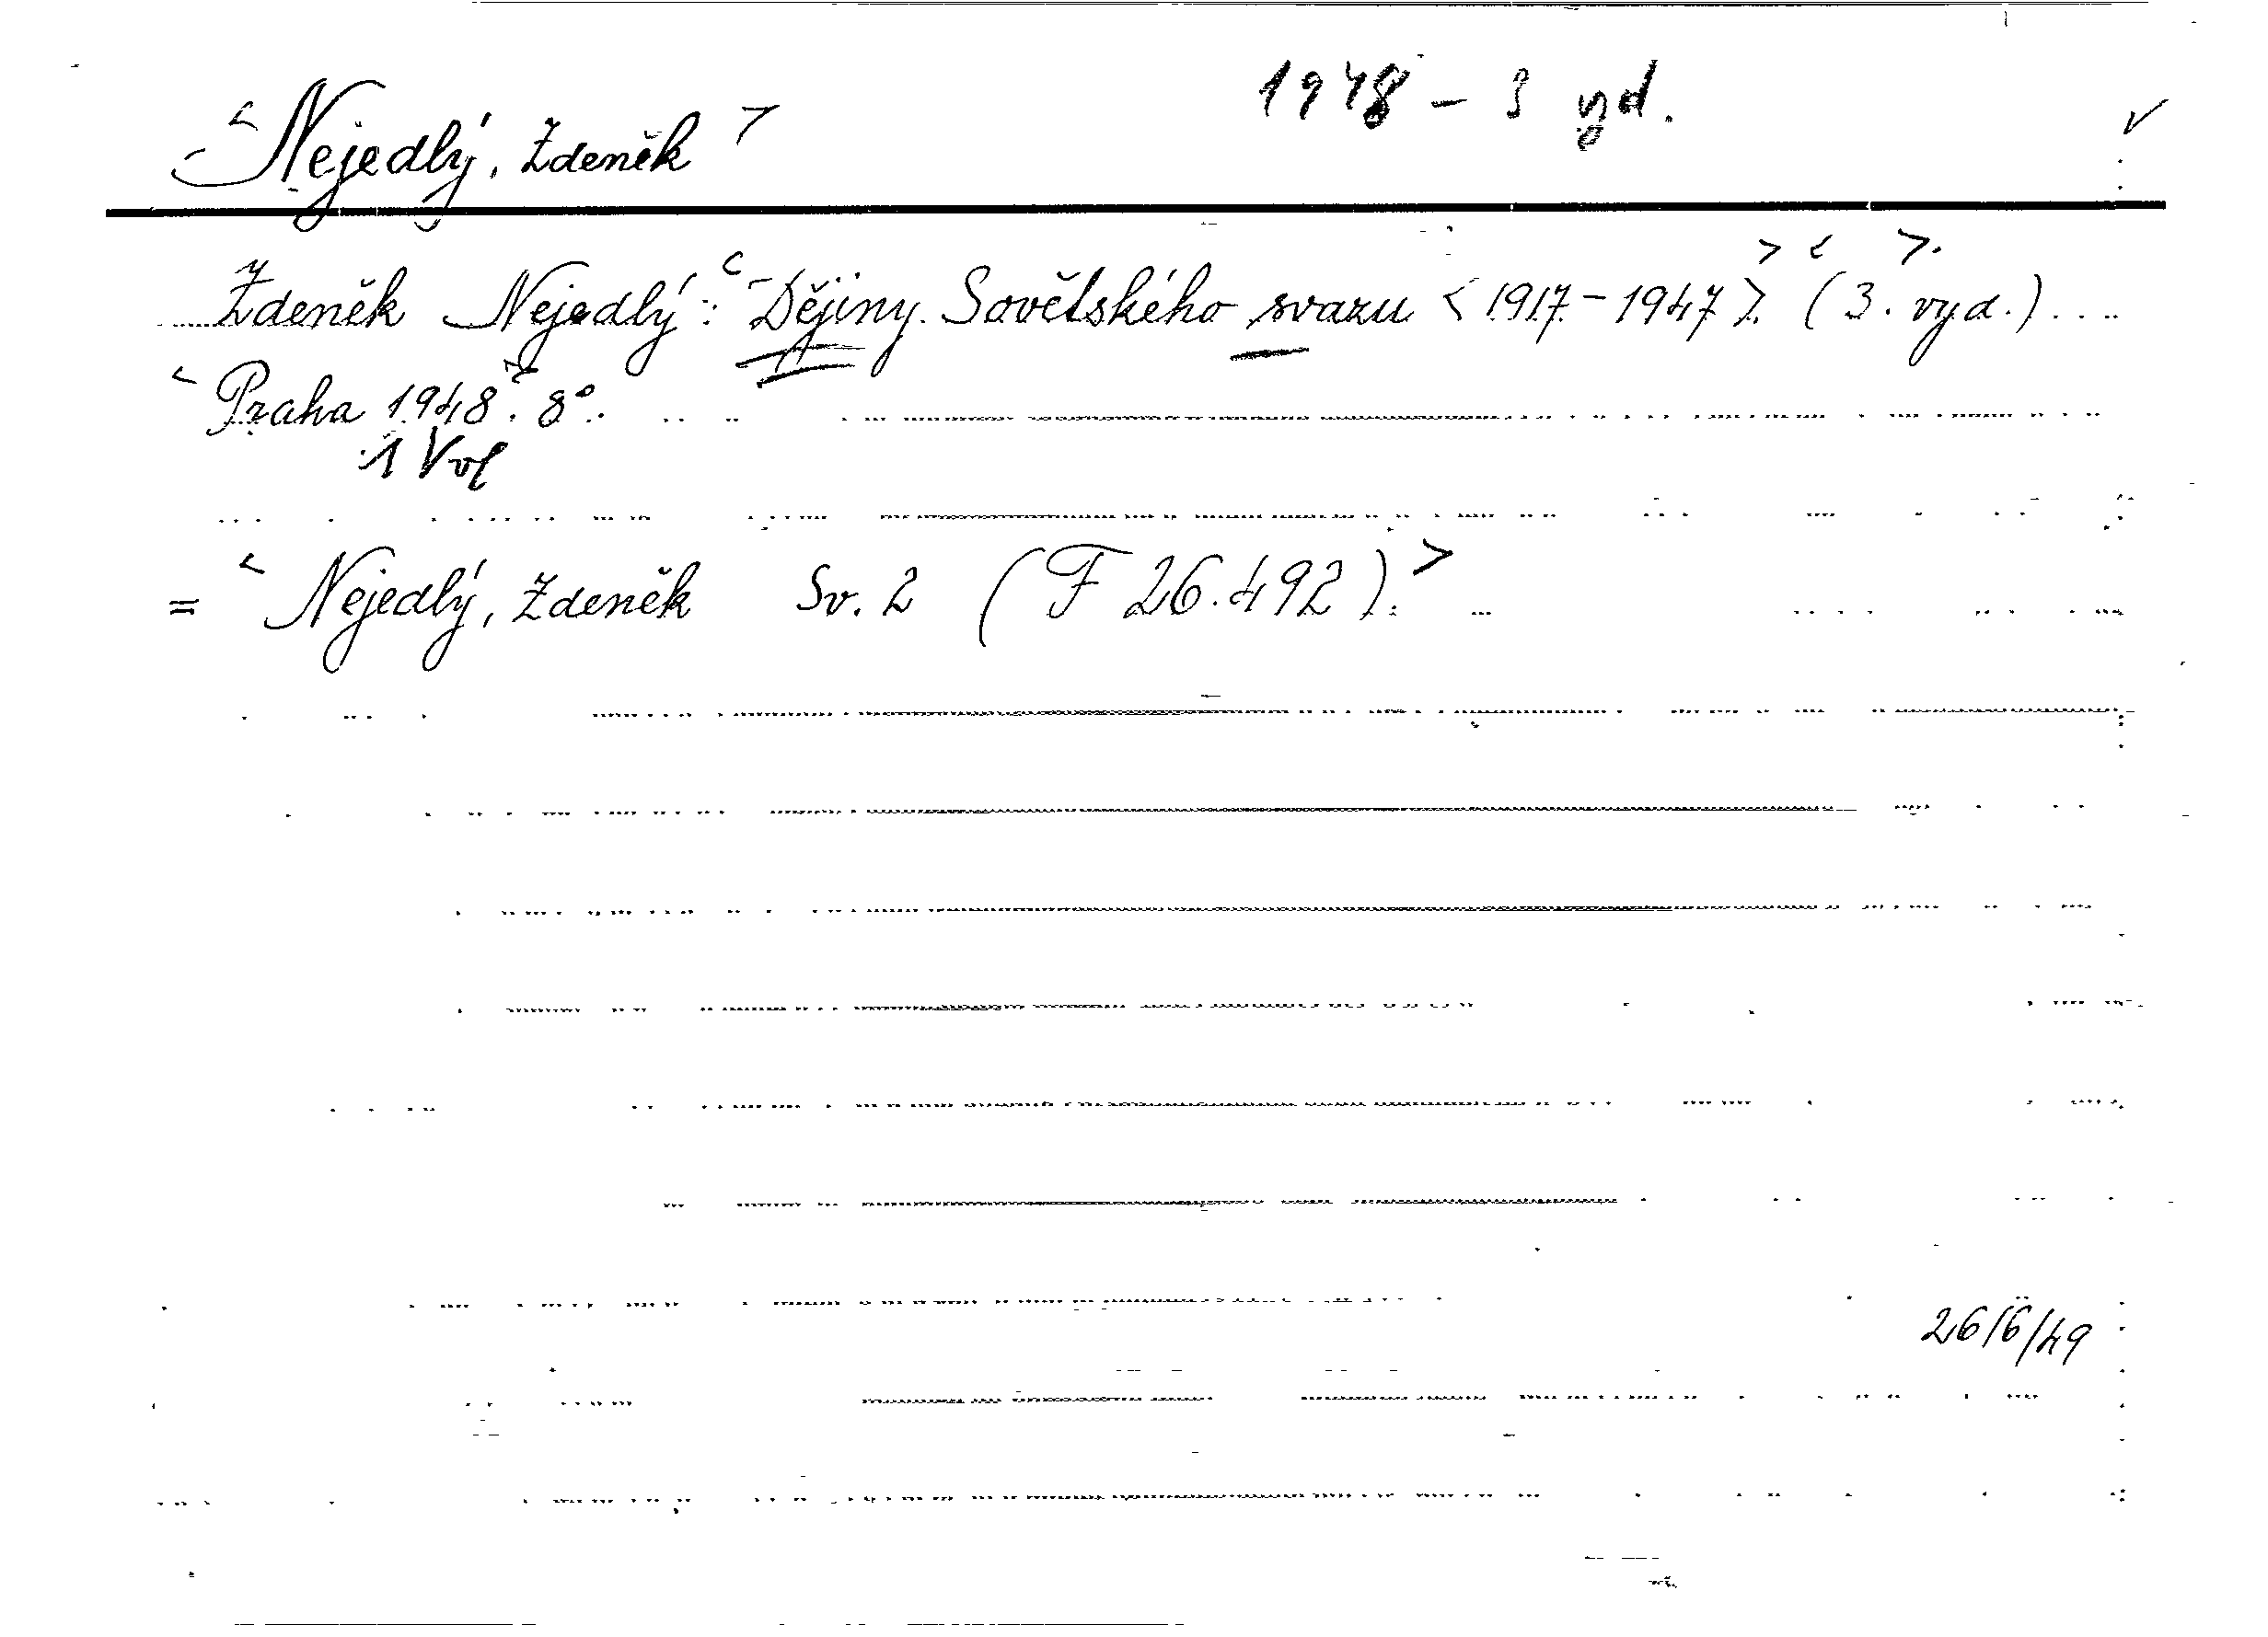 1948 – 3 vyd.
< Nejedlý, Zdeněk >
Zdeněk Nejedlý: < Dějiny Sovětského svazu <1917–1947>. > < (3. vyd.) >.
< Praha 1948. > 8°.
1 Vol
= < Nejedlý, Zdeněk Sv. 2 (F 26.492). >
26/6/49